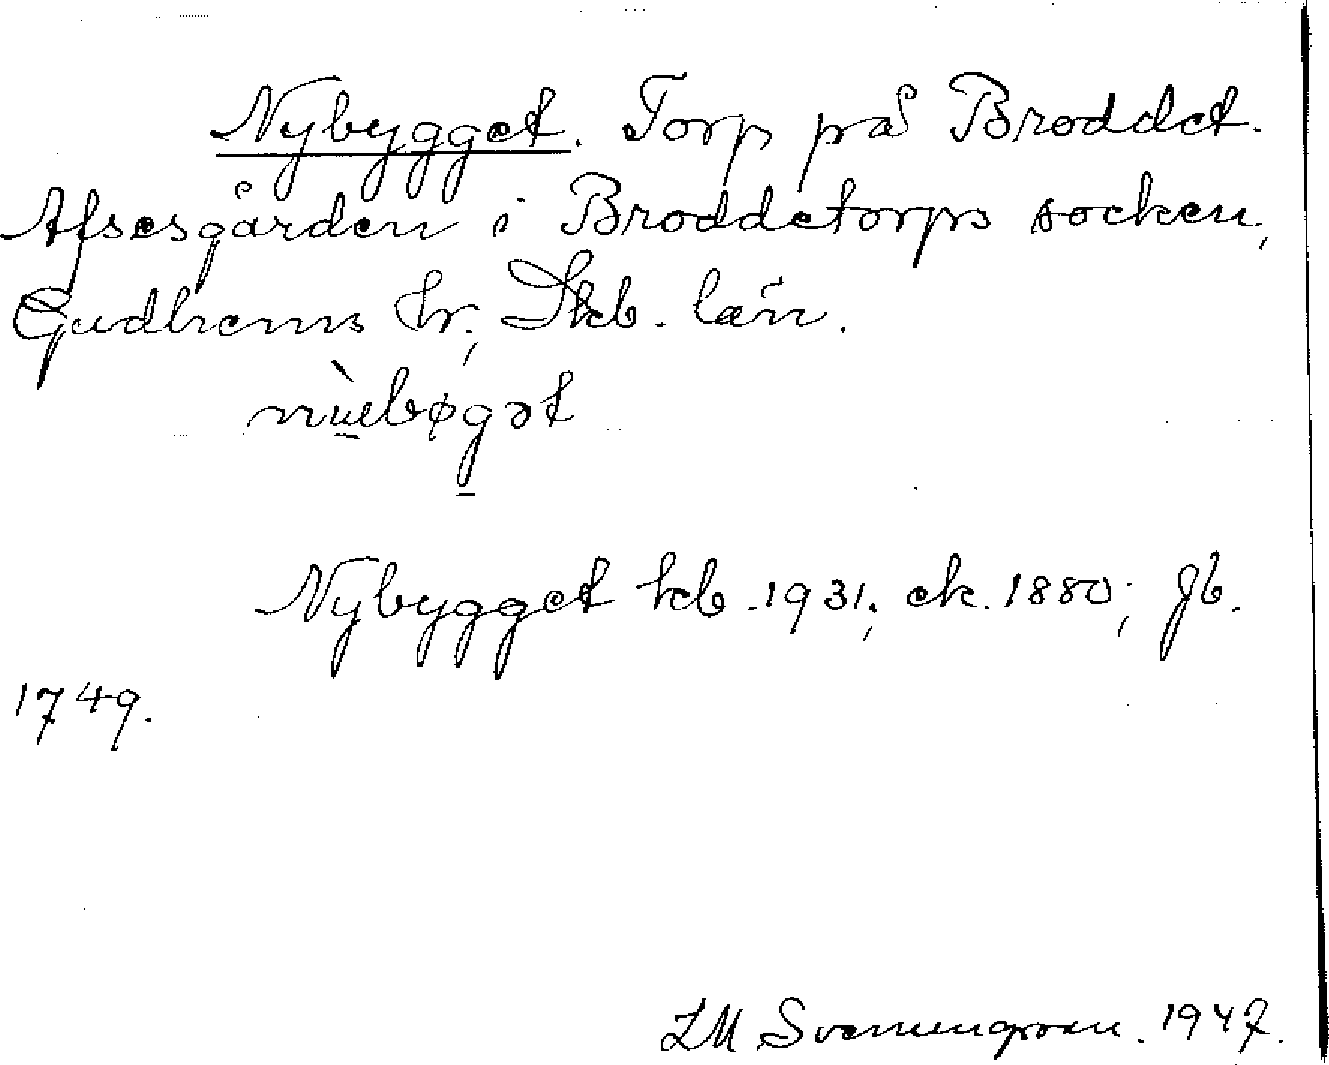 Nybygget. Torp på Broddet.
Afsesgården i Broddetorps socken,
Gudhems hr; Skb. län.
Nybygget kb. 1931; ek. 1880; Jb.
1749.
LM Svenungsson. 1947.